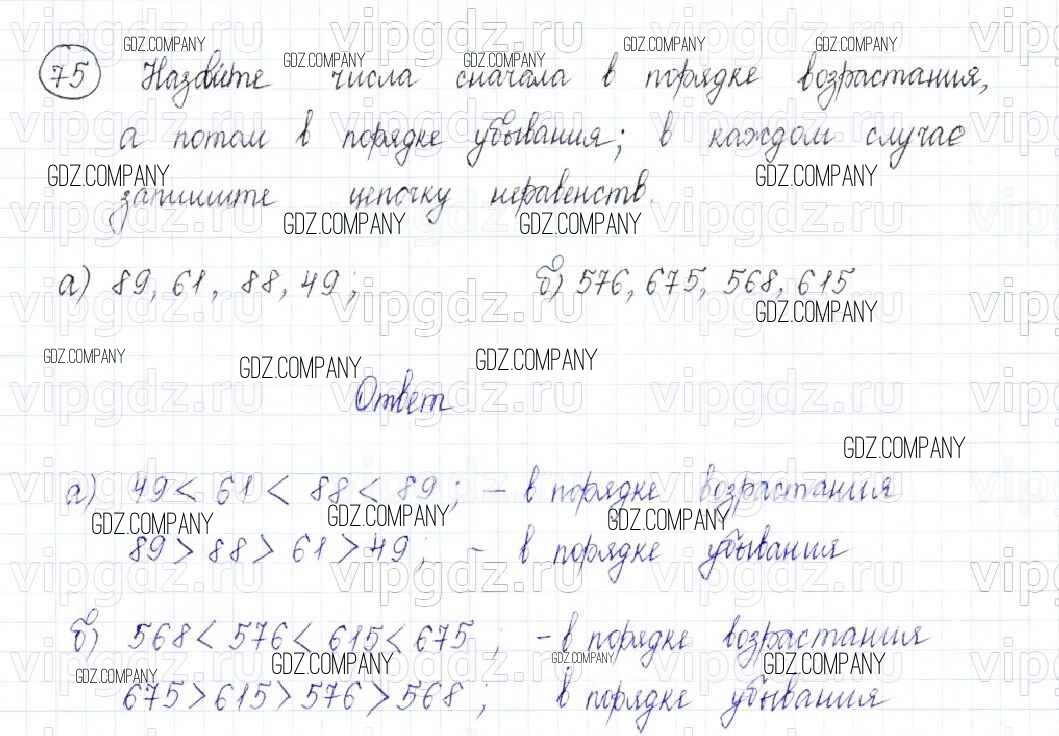 75 Назовите числа сначала в порядке возрастания,
а потом в порядке убывания; в каждом случае
запишите цепочку неравенств.
а) 89, 61, 88, 49; б) 576, 675, 568, 615
Ответ
а) 49 < 61 < 88 < 89; - в порядке возрастания
89 > 88 > 61 > 49; - в порядке убывания
б) 568 < 576 < 615 < 675; - в порядке возрастания
675 > 615 > 576 > 568; в порядке убывания
GDZ.COMPANY
vipgdz.ru